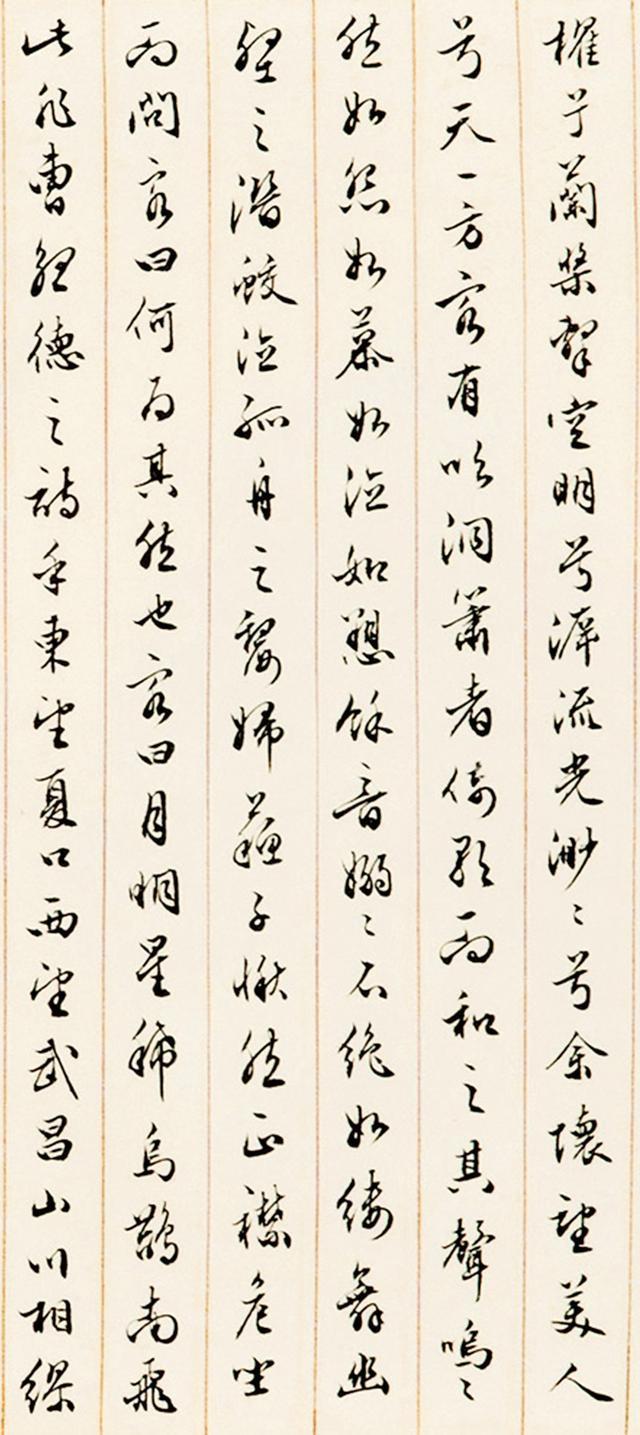 櫂兮蘭槳擊空明兮溯流光渺〻兮余懷望美人
兮天一方客有吹洞簫者倚歌而和之其聲嗚〻
然如怨如慕如泣如愬餘音嫋〻不絕如縷舞幽
壑之潛蛟泣孤舟之嫠婦蘇子愀然正襟危坐
而問客曰何為其然也客曰月明星稀烏鵲南飛
此非曹孟德之詩乎東望夏口西望武昌山川相繆